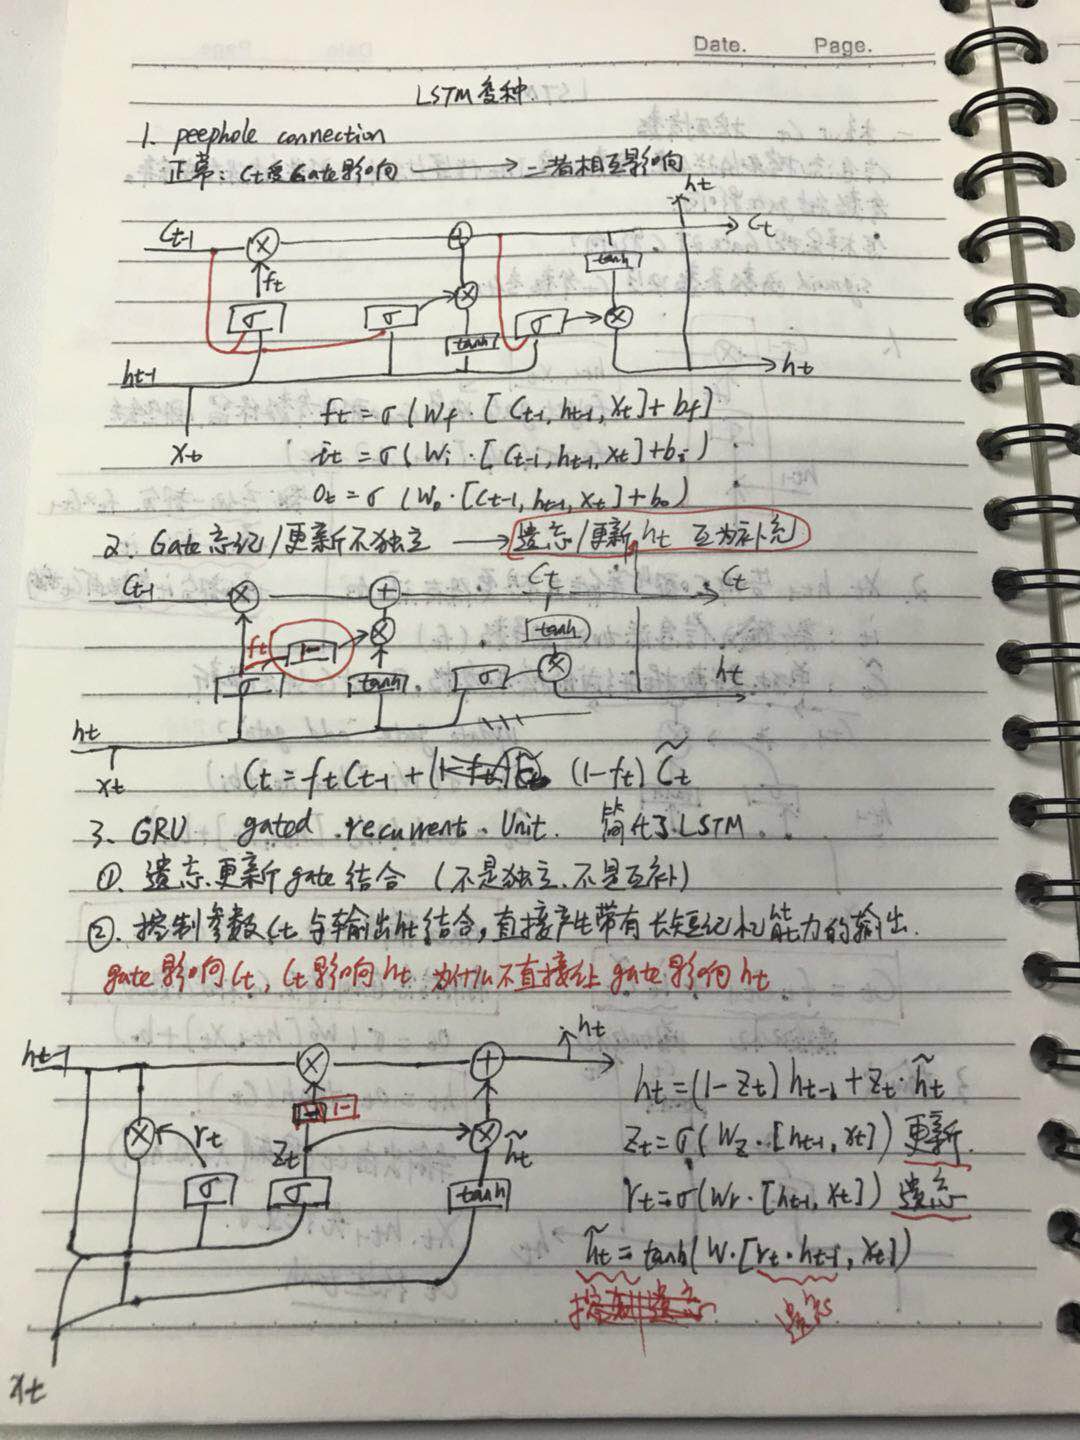 Date. Page.
LSTM变种
1. peephole connection
正常: Ct受Gate影响 → 二者相互影响
ht
Ct-1 × + Ct
tanh
ft × 
σ σ tanh σ ×
ht-1 ht
xt
ft = σ(Wf·[Ct-1, ht-1, xt]+bf]
it = σ(Wi·[Ct-1, ht-1, xt]+bi)
Ot = σ(Wo·[Ct-1, ht-1, xt]+bo)
2. Gate忘记/更新不独立 → 遗忘/更新 ht 互为补充
Ct-1 × + Ct Ct
ft 1- × tanh
σ tanh σ × ht
ht
xt
Ct = ftCt-1 + (1-ft) C̃t
3. GRU gated recurrent Unit. 简化了LSTM.
①. 遗忘.更新gate结合 (不是独立、不是互补)
②. 控制参数Ct与输出ht结合,直接产生带有长短记忆能力的输出.
gate影响Ct, Ct影响ht 为什么不直接让gate影响ht
ht-1 × + ht
1-
ht = (1-Zt) ht-1 + Zt·h̃t
× rt Zt × h̃t
Zt = σ(Wz·[ht-1, xt]) 更新.
σ σ tanh
rt = σ(Wr·[ht-1, xt]) 遗忘
h̃t = tanh(W·[rt·ht-1, xt])
遗忘
xt